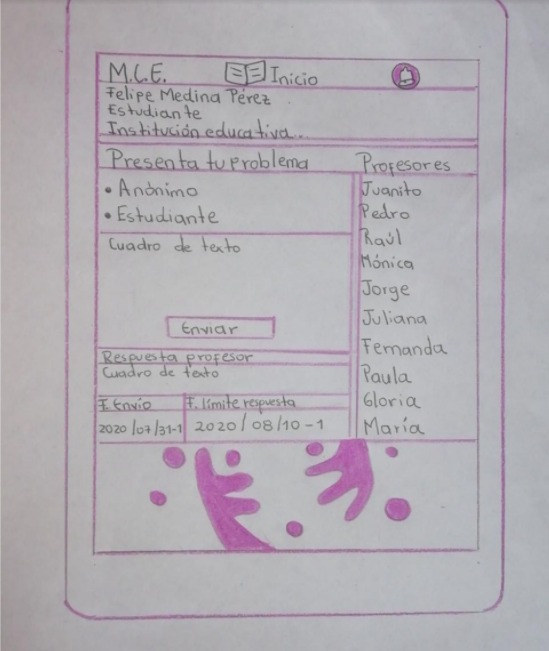 M.C.E. Inicio
Felipe Medina Pérez
Estudiante
Institución educativa...
Presenta tu problema
• Anónimo
• Estudiante
Cuadro de texto
Enviar
Respuesta profesor
Cuadro de texto
F. Envio F. límite respuesta
2020/07/31-1 2020/08/10-1
Profesores
Juanito
Pedro
Raúl
Mónica
Jorge
Juliana
Fernanda
Paula
Gloria
María